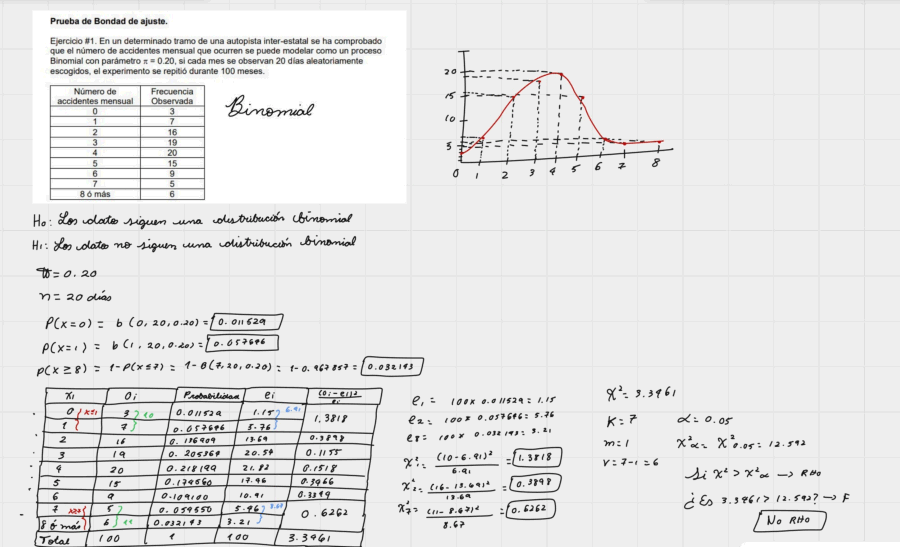 Prueba de Bondad de ajuste.
Ejercicio #1. En un determinado tramo de una autopista inter-estatal se ha comprobado
que el número de accidentes mensual que ocurren se puede modelar como un proceso
Binomial con parámetro π = 0.20, si cada mes se observan 20 días aleatoriamente
escogidos, el experimento se repitió durante 100 meses.
Número de accidentes mensual Frecuencia Observada
0 3
1 7
2 16
3 19
4 20
5 15
6 9
7 5
8 ó más 6
Binomial
20
15
10
5
0 1 2 3 4 5 6 7 8
Ho: Los datos siguen una distribución binomial
H1: Los datos no siguen una distribución binomial
π = 0.20
n = 20 días
P(x=0) = b(0, 20, 0.20) = 0.011529
P(x=1) = b(1, 20, 0.20) = 0.057646
P(x≥8) = 1-P(x≤7) = 1-B(7, 20, 0.20) = 1-0.967857 = 0.032143
xi Oi Probabilidad ei (oi-ei)²/ei
0 x≤1 3 10 0.011529 1.15 6.91 1.3818
1 7 0.057646 5.76
2 16 0.136909 13.69 0.3898
3 19 0.205364 20.54 0.1155
4 20 0.218199 21.82 0.1518
5 15 0.174560 17.46 0.3466
6 9 0.109100 10.91 0.3344
7 x≥7 5 11 0.054550 5.46 8.67 0.6262
8 ó más 6 0.032143 3.21
Total 100 1 100 3.3461
e1 = 100x 0.011529 = 1.15
e2 = 100x 0.057646 = 5.76
e8 = 100x 0.032143 = 3.21
x²1 = (10-6.91)²/6.91 = 1.3818
x²2 = (16-13.69)²/13.69 = 0.3898
x²7 = (11-8.67)²/8.67 = 0.6262
x² = 3.3461
K = 7 α = 0.05
m = 1 x²α = x²0.05 = 12.592
v = 7-1 = 6
Si x² > x²α → RHo
¿Es 3.3461 > 12.592? → F
No RHo